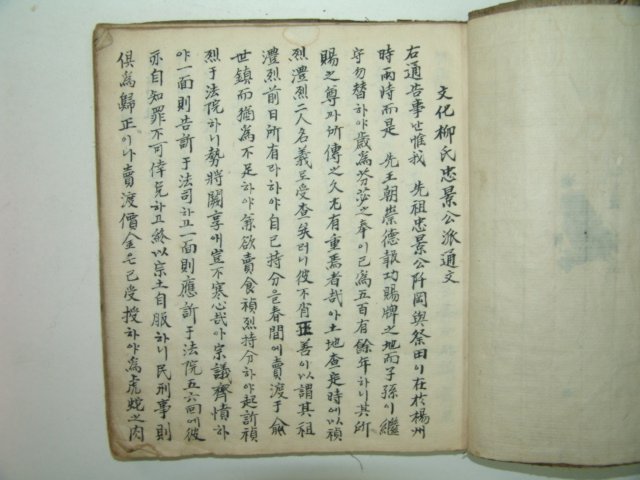 文化柳氏忠景公派通文
右通告事난惟我 先祖忠景公阡岡與祭田이在於楊州
時兩時而是 先王朝崇德報功賜牌之地而子孫이繼
守勿替하야歲爲芬苾之奉이已爲五百有餘年하니其所
賜之尊과所傳之久尤有重焉者哉아土地查定時에以禎
烈澧烈二人名義로受查矣러니彼不肖 善이以謂其祖
澧烈前日所有라하야自己持分을春間에賣渡于俞
世鎭而猶爲不足하야兼欲賣食禎烈持分하야起訴禎
烈于法院하니勢將闕享에豈不寒心哉아宗議齊憤하
야一面則告訴于法司하고一面則應訴于法院五六回에彼
亦自知罪不可倖免하고終以宗土自服하니民刑事則
俱爲歸正이나賣渡價金은已受授하야爲虎蛇之內